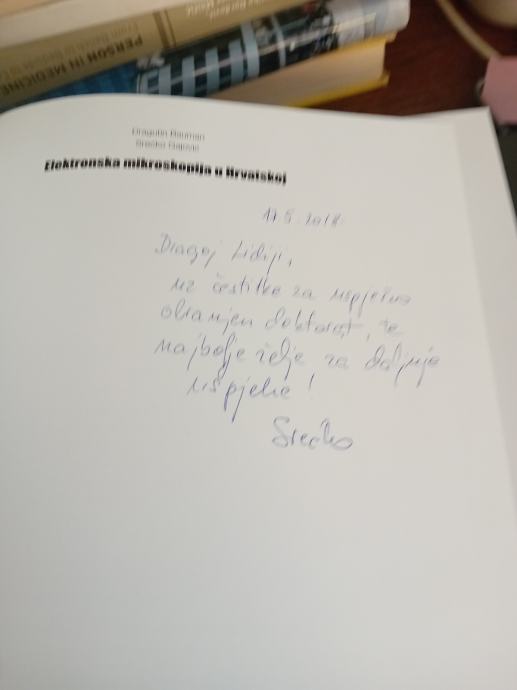 PERSON IN MEDICINE
Dragutin Bauman
Srećko Gajović
Elektronska mikroskopija u Hrvatskoj
17.5.2018.
Dragoj Lidiji,
uz čestitke za uspješno
obranjen doktorat, te
najbolje želje za daljnje
uspjehe!
Srećko